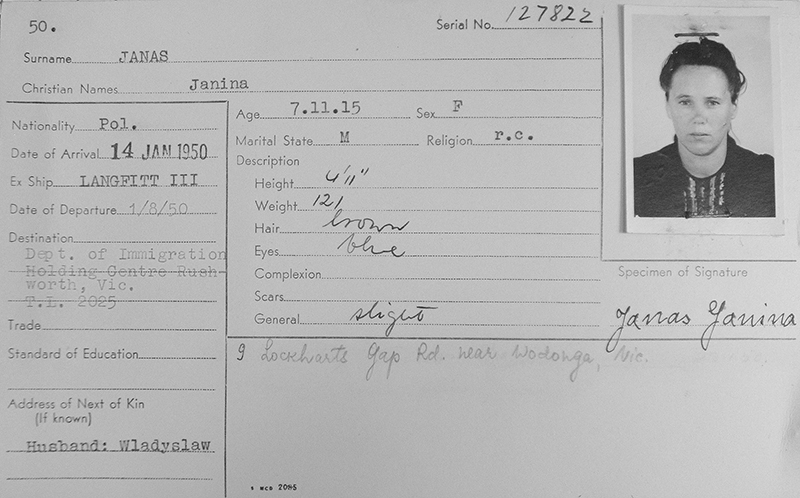 50.
Serial No. 127822
Surname JANAS
Christian Names Janina
Nationality Pol.
Date of Arrival 14 JAN 1950
Ex Ship LANGFITT III
Date of Departure 1/8/50
Destination
Dept. of Immigration
Holding Centre Rush-
worth, Vic.
T.L. 2025
Trade
Standard of Education
Address of Next of Kin
(If known)
Husband: Wladyslaw
Age 7.11.15 Sex F
Marital State M Religion r.c.
Description
Height 4'11"
Weight 121
Hair brown
Eyes blue
Complexion
Scars
General slight
Specimen of Signature
Janas Janina
9 Lockharts Gap Rd. near Wodonga, Vic.
S MCD 2085